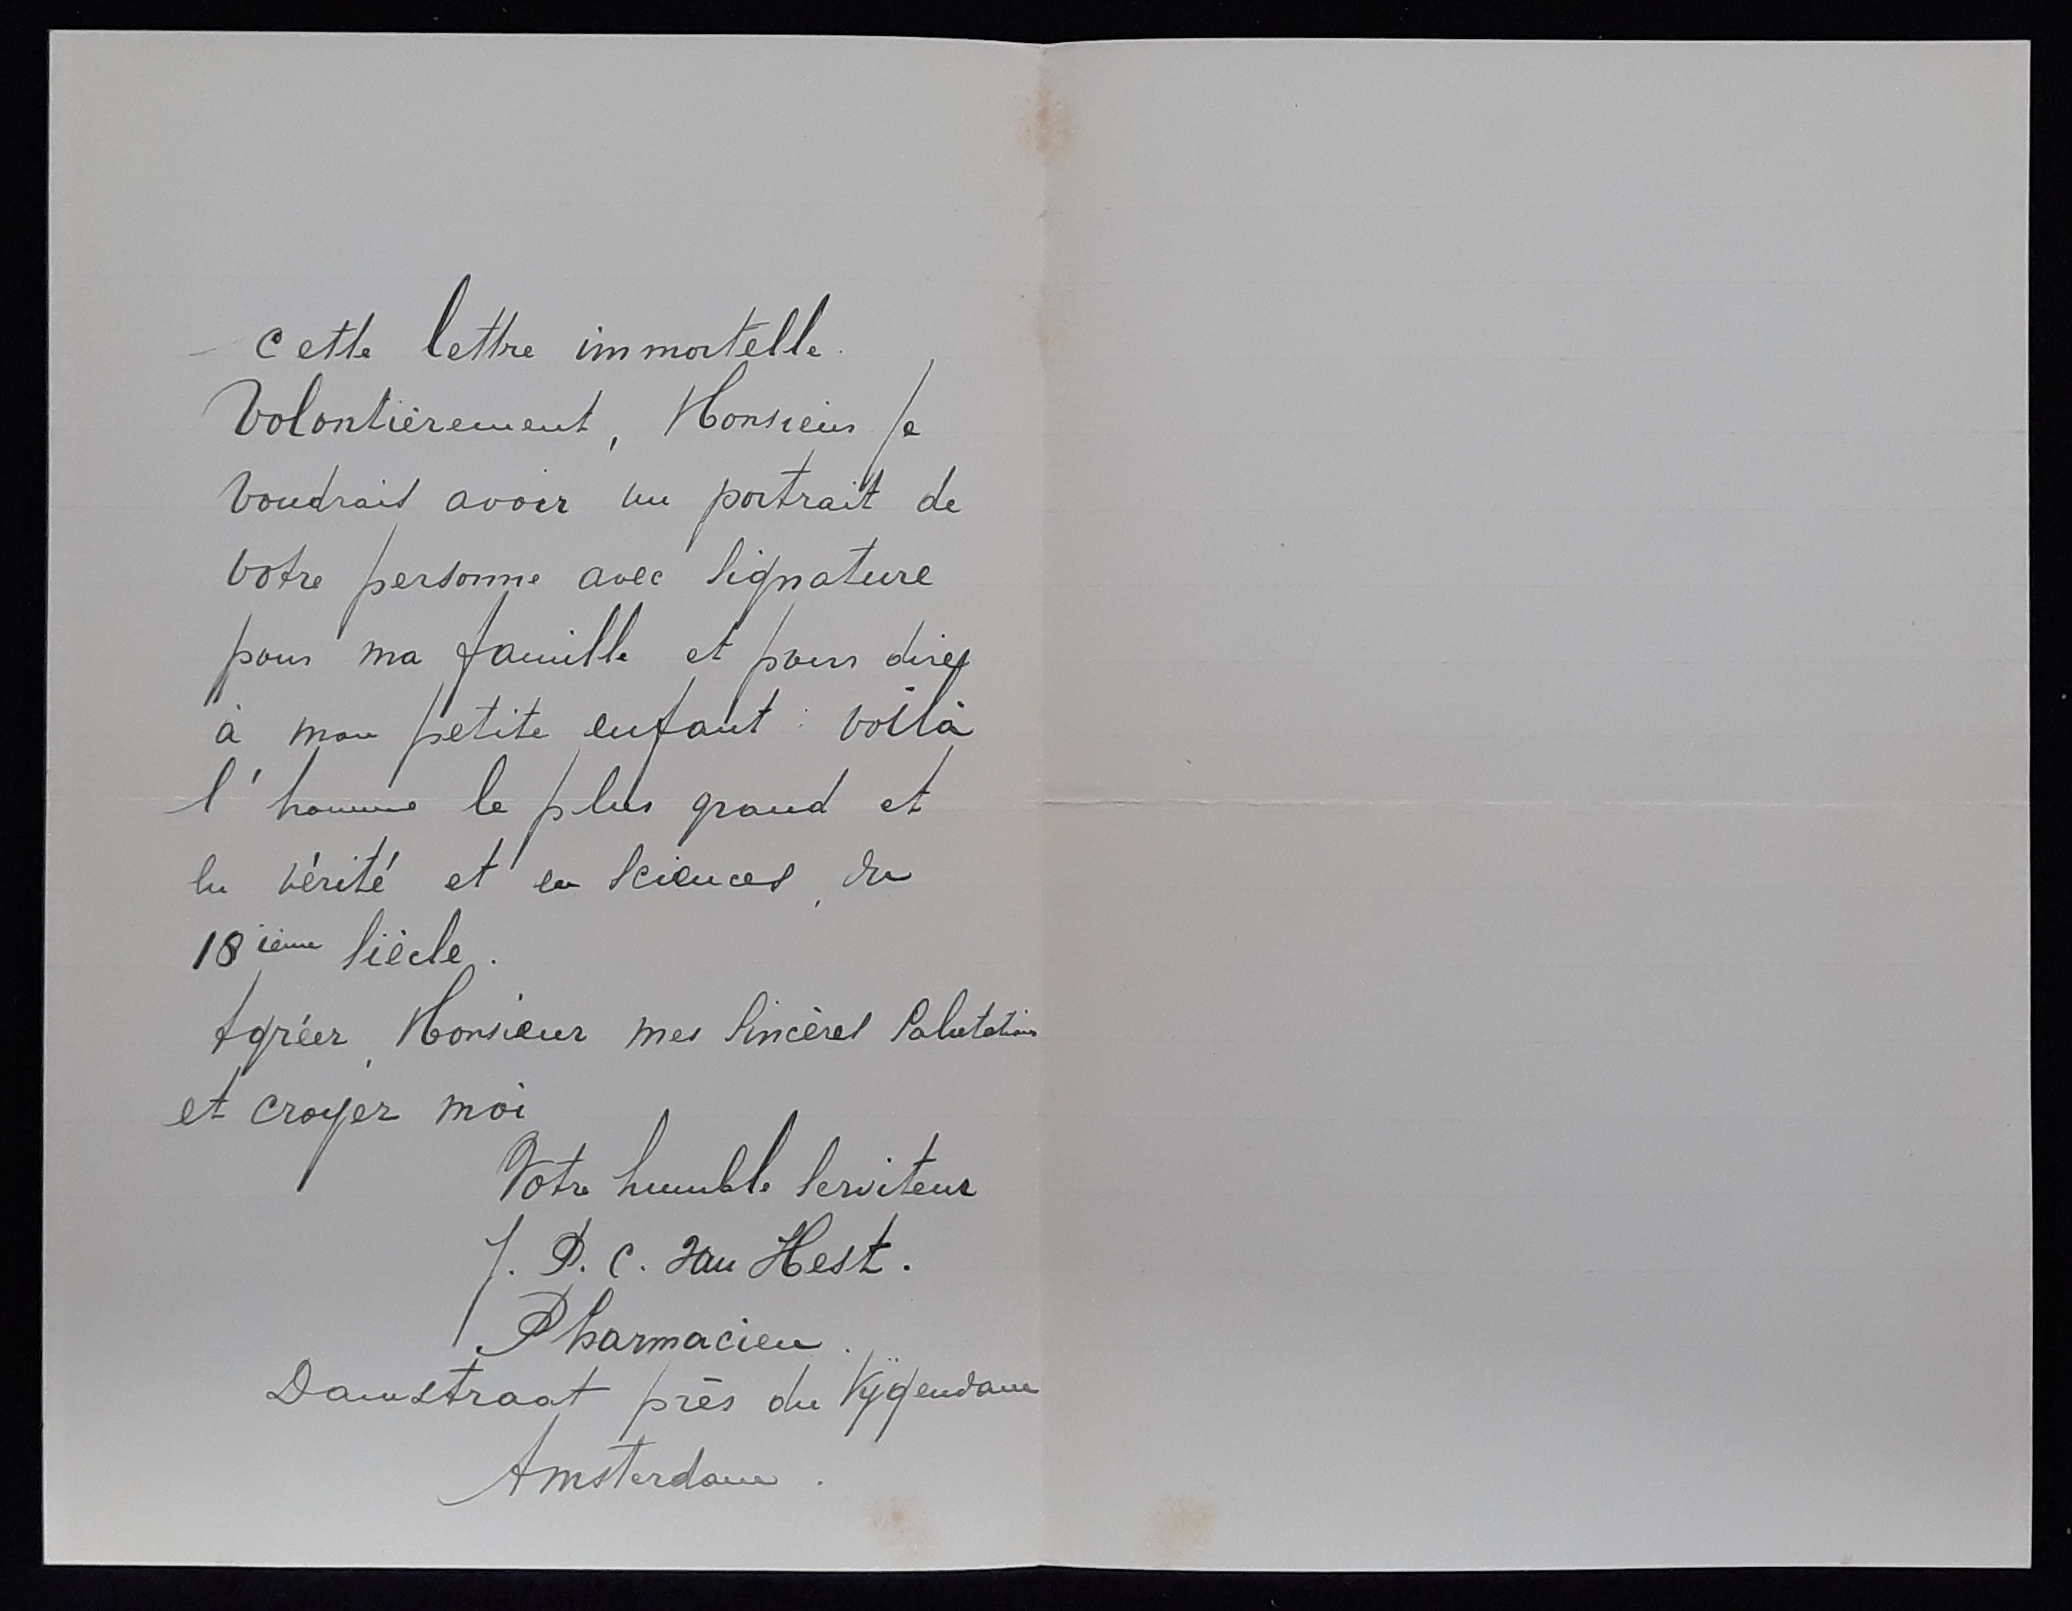 cette lettre immortelle.
Volontièrement, Monsieur Je
voudrais avoir un portrait de
votre personne avec signature
pour ma famille et pour dire
à mon petite enfant : voilà
l'homme le plus grand et
en vérité et en sciences, du
18ième siècle.
Agréer, Monsieur mes sincères salutations
et croyer moi
Votre humble serviteur
J. P. C. van Hest.
Pharmacien.
Damstraat près du Vÿgendam
Amsterdam.